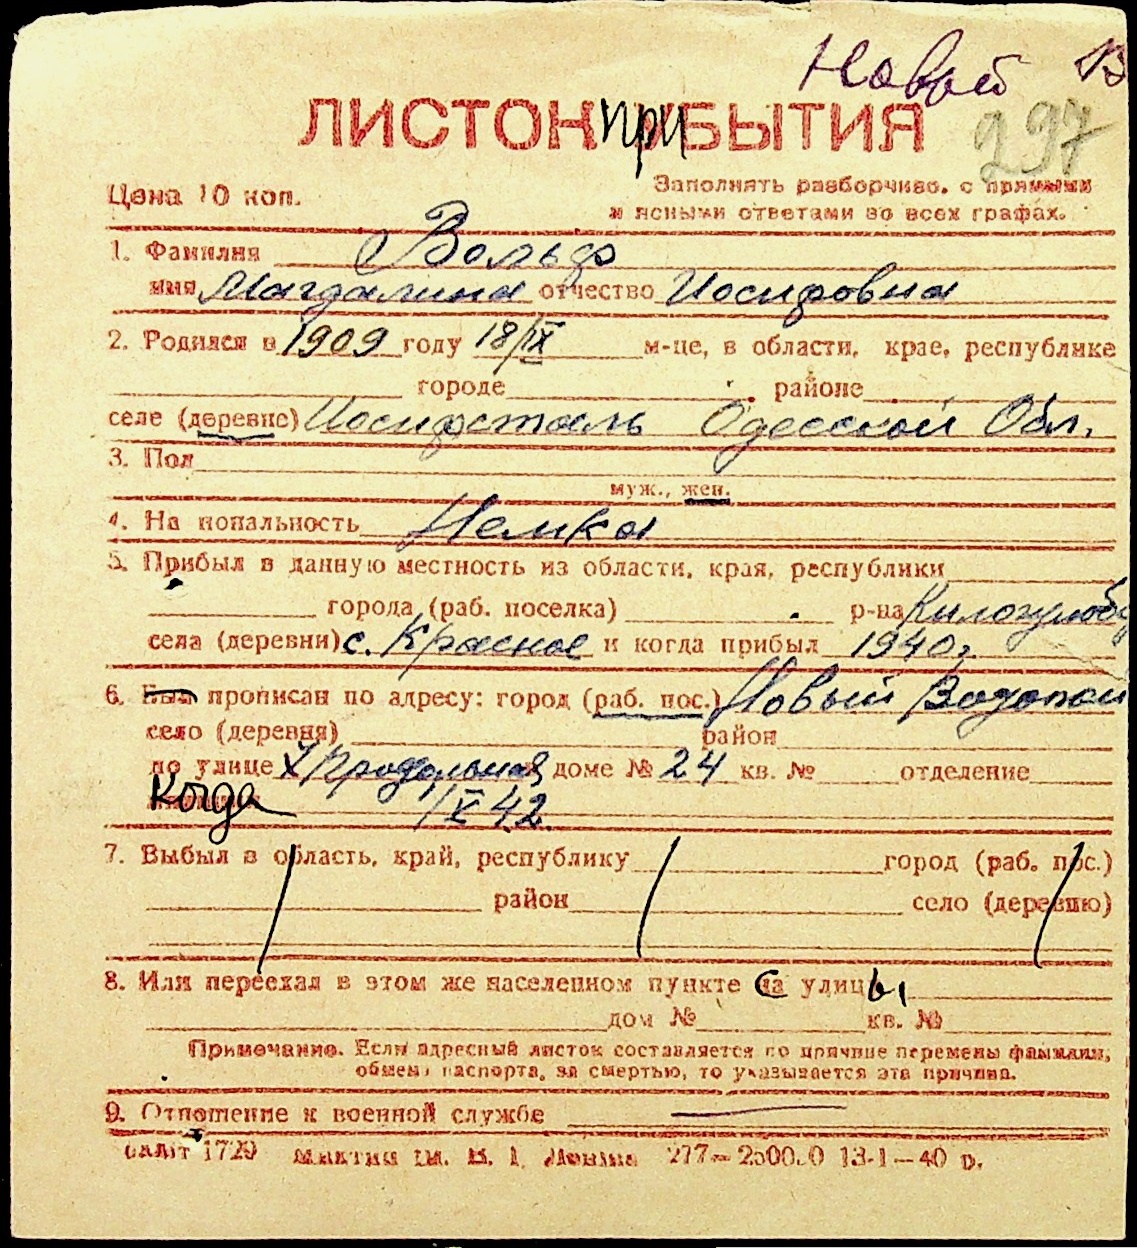 Новый В
297
ЛИСТОК ПРИБЫТИЯ
Цена 10 коп.
Заполнять разборчиво, с прямыми
и ясными ответами во всех графах.
1. Фамилия Вольф
имя Магдалина отчество Иосифовна
2. Родился в 1909 году 18/IX м-це, в области, крае, республике
городе районе
селе (деревне) Иосифсталь Одесской Обл.
3. Пол
муж., жен.
4. Национальность Немка
5. Прибыл в данную местность из области, края, республики
города (раб. поселка) р-на
села (деревни) с. Красное и когда прибыл 1940 г.
6. Был прописан по адресу: город (раб. пос.) Новый Водопой
село (деревня) район
по улице Продольная доме № 24 кв. № отделение
Когда 1/X 42.
7. Выбыл в область, край, республику город (раб. пос.)
район село (деревню)
8. Или переехал в этом же населенном пункте с улицы
дом № кв. №
Примечание. Если адресный листок составляется по причине перемены фамилии,
обмена паспорта, за смертью, то указывается эта причина.
9. Отношение к военной службе
1729 им. В. І. Леніна 13-1—40 р.